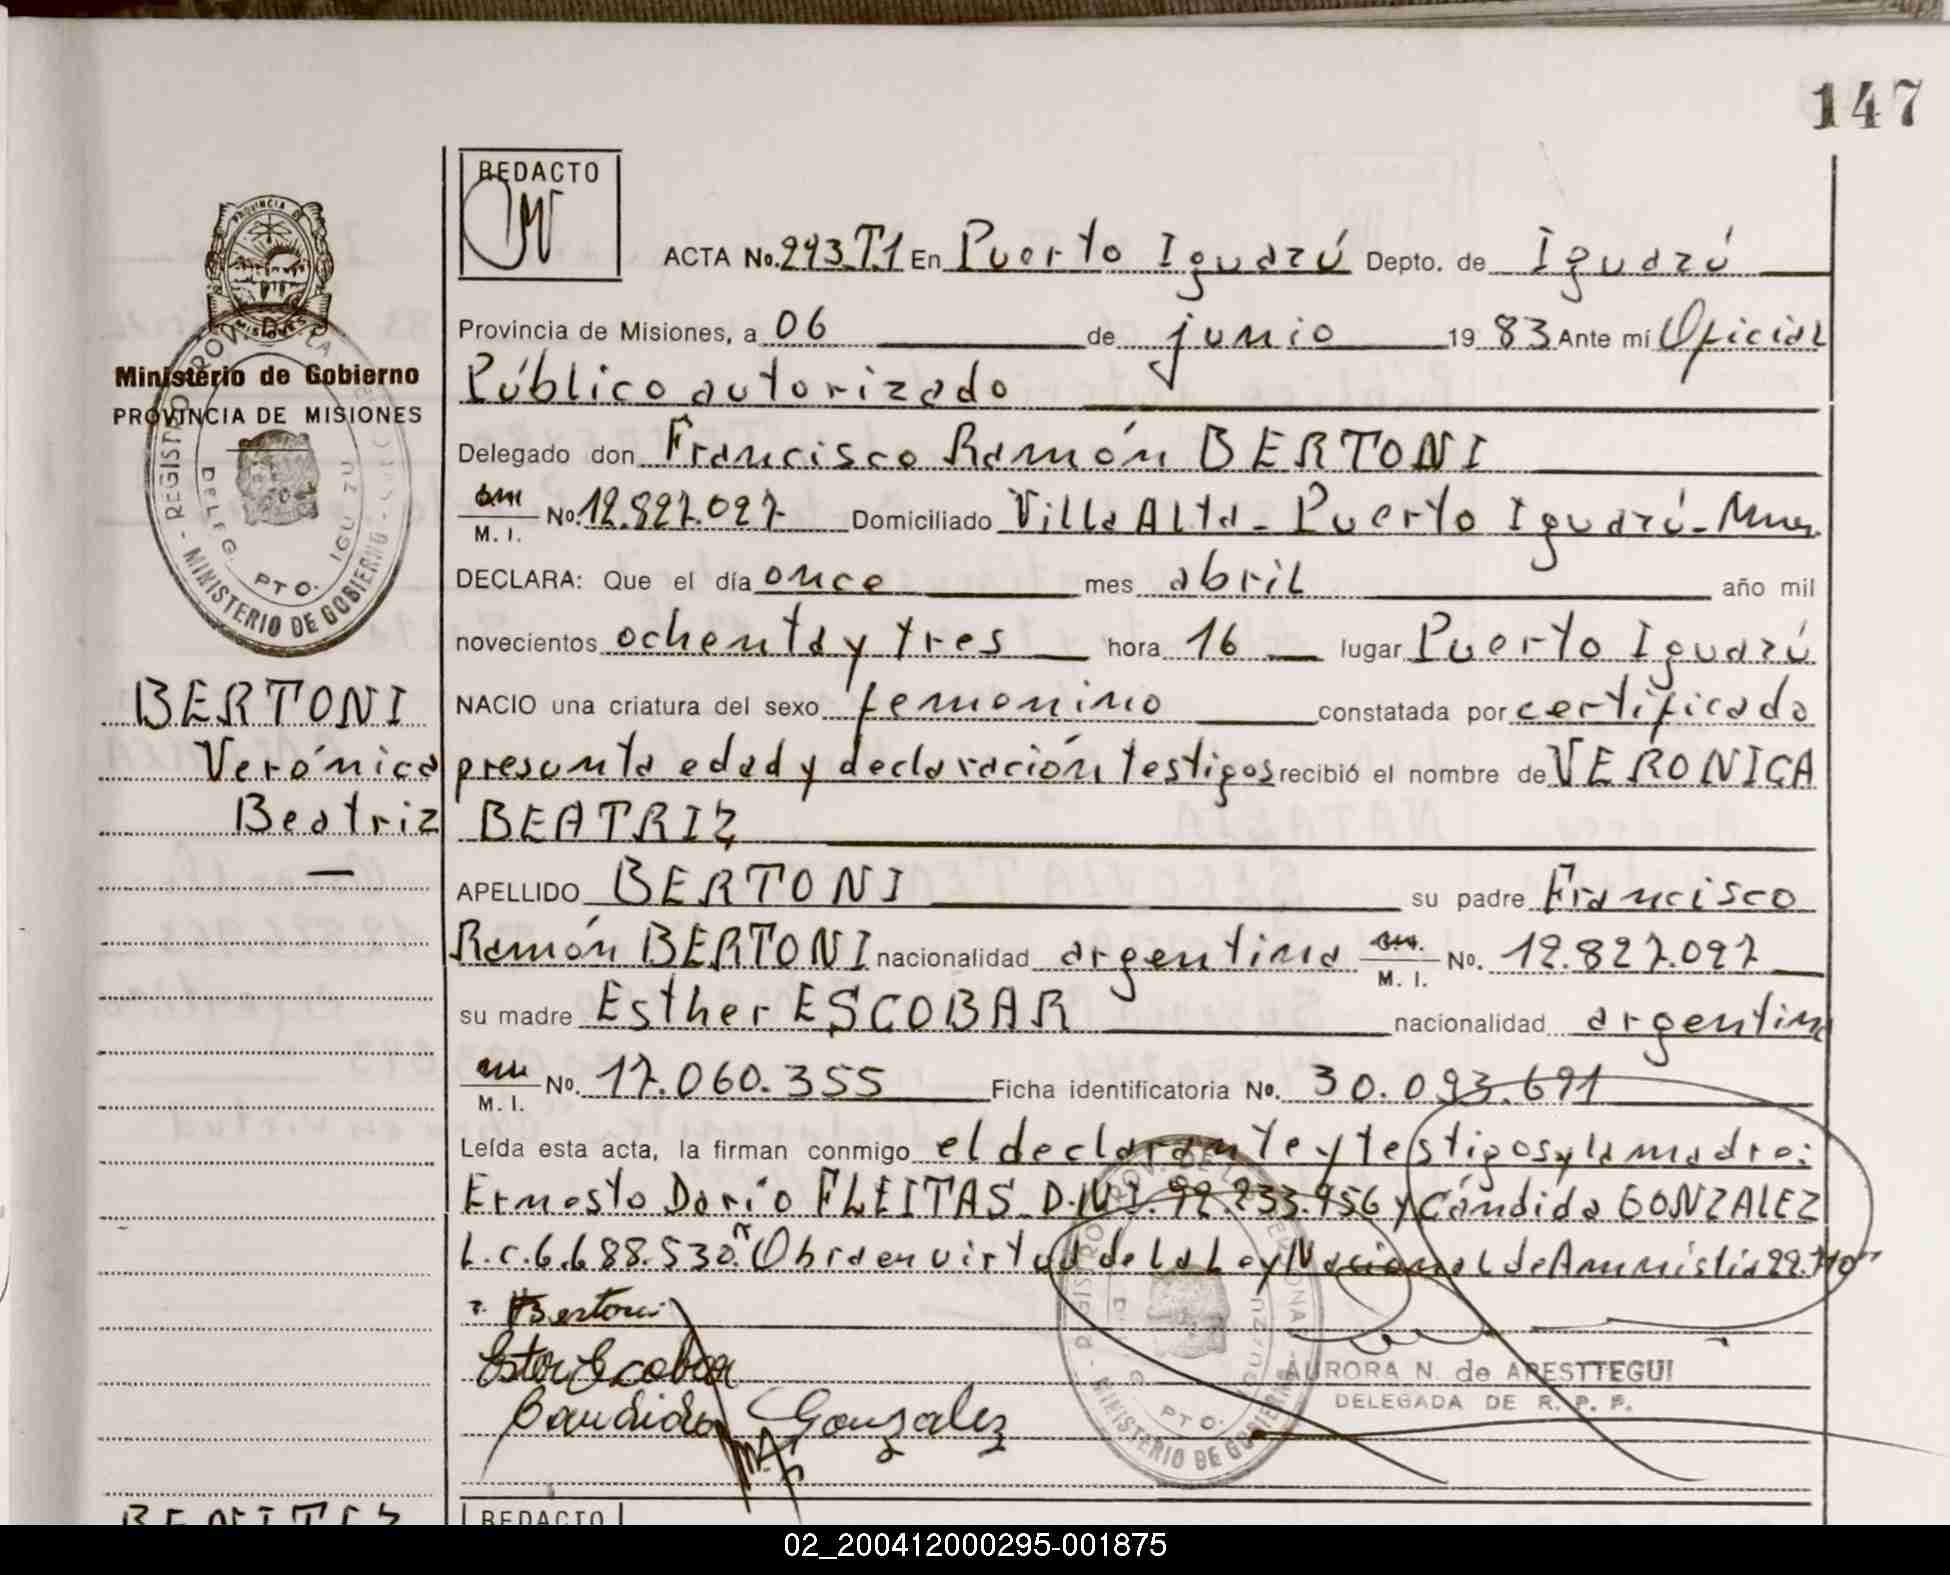 147
REDACTO
ACTA No. 293.T1 En Puerto Iguazú Depto. de Iguazú
Provincia de Misiones, a 06 de junio 19 83 Ante mí Oficial
Público autorizado
Ministerio de Gobierno
PROVINCIA DE MISIONES
Delegado don Francisco Ramón BERTONI
M. I. No. 12.827.027 Domiciliado Villa Alta - Puerto Iguazú -
DECLARA: Que el día once mes abril año mil
novecientos ochenta y tres hora 16 lugar Puerto Iguazú
BERTONI
Verónica
Beatriz
NACIO una criatura del sexo femenino constatada por certificado
presunta edad y declaración testigos recibió el nombre de VERONICA
BEATRIZ
APELLIDO BERTONI su padre Francisco
Ramón BERTONI nacionalidad argentina M. I. No. 12.827.027
su madre Esther ESCOBAR nacionalidad argentina
M. I. No. 17.060.355 Ficha identificatoria No. 30.093.691
Leída esta acta, la firman conmigo el declarante y testigos y la madre:
Ernesto Darío FLEITAS D.N.I. 92.233.956 y Cándida GONZALEZ
L.C. 6.688.530. "Obra en virtud de la Ley Nacional de Amnistía 22.710"
Bertoni
Ester Escobar
Candida Gonzalez
AURORA N. de ARESTTEGUI
DELEGADA DE R. P. P.
REGISTRO PROV. DE LA
MINISTERIO DE GOBIERNO
DELEG. PTO. IGUAZU
MINISTERIO DE GOBIERNO
PTO.
BENITEZ
REDACTO
02_200412000295-001875